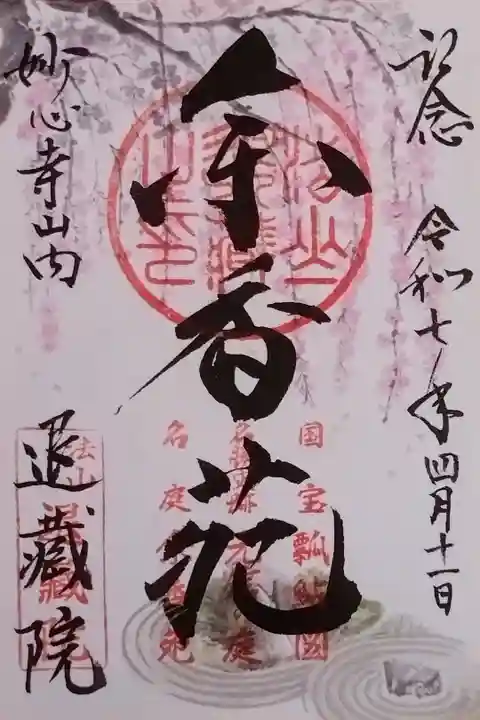 記念 令和七年四月十一日
余香苑
国宝瓢鮎圖
元信の庭
名庭余香苑
妙心寺山内
退藏院